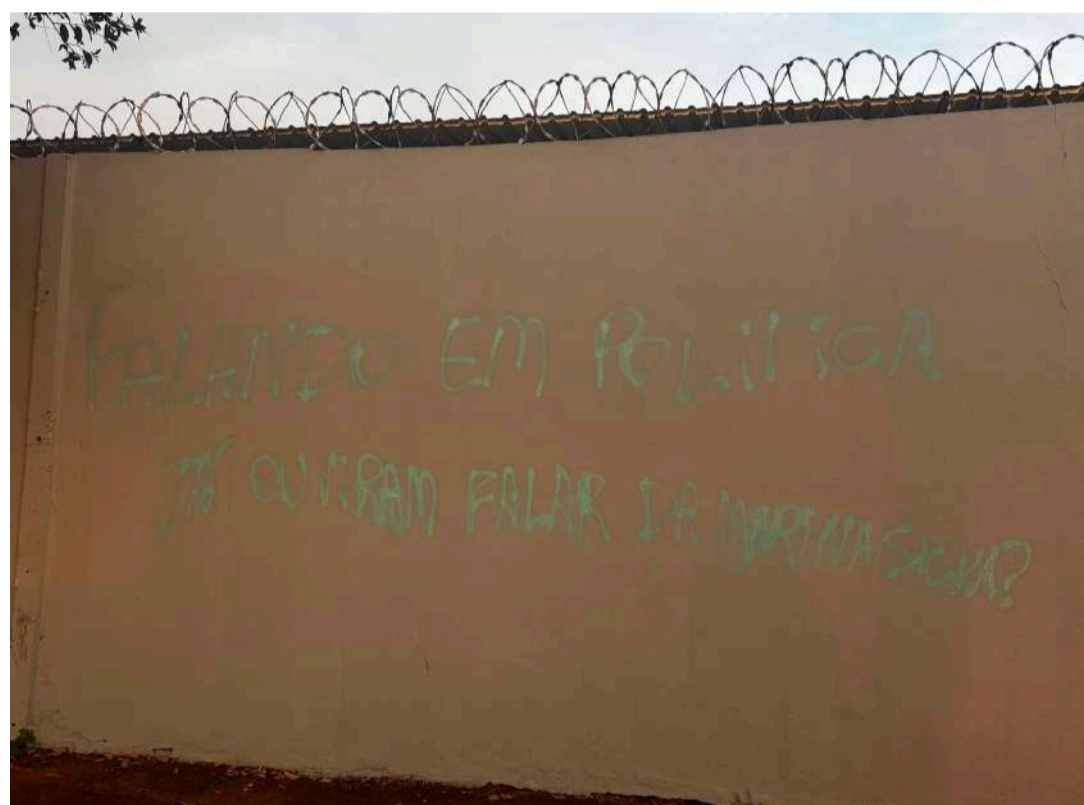 FALANDO EM POLITICA
JÁ OUVIRAM FALAR DA MARINA SILVA?